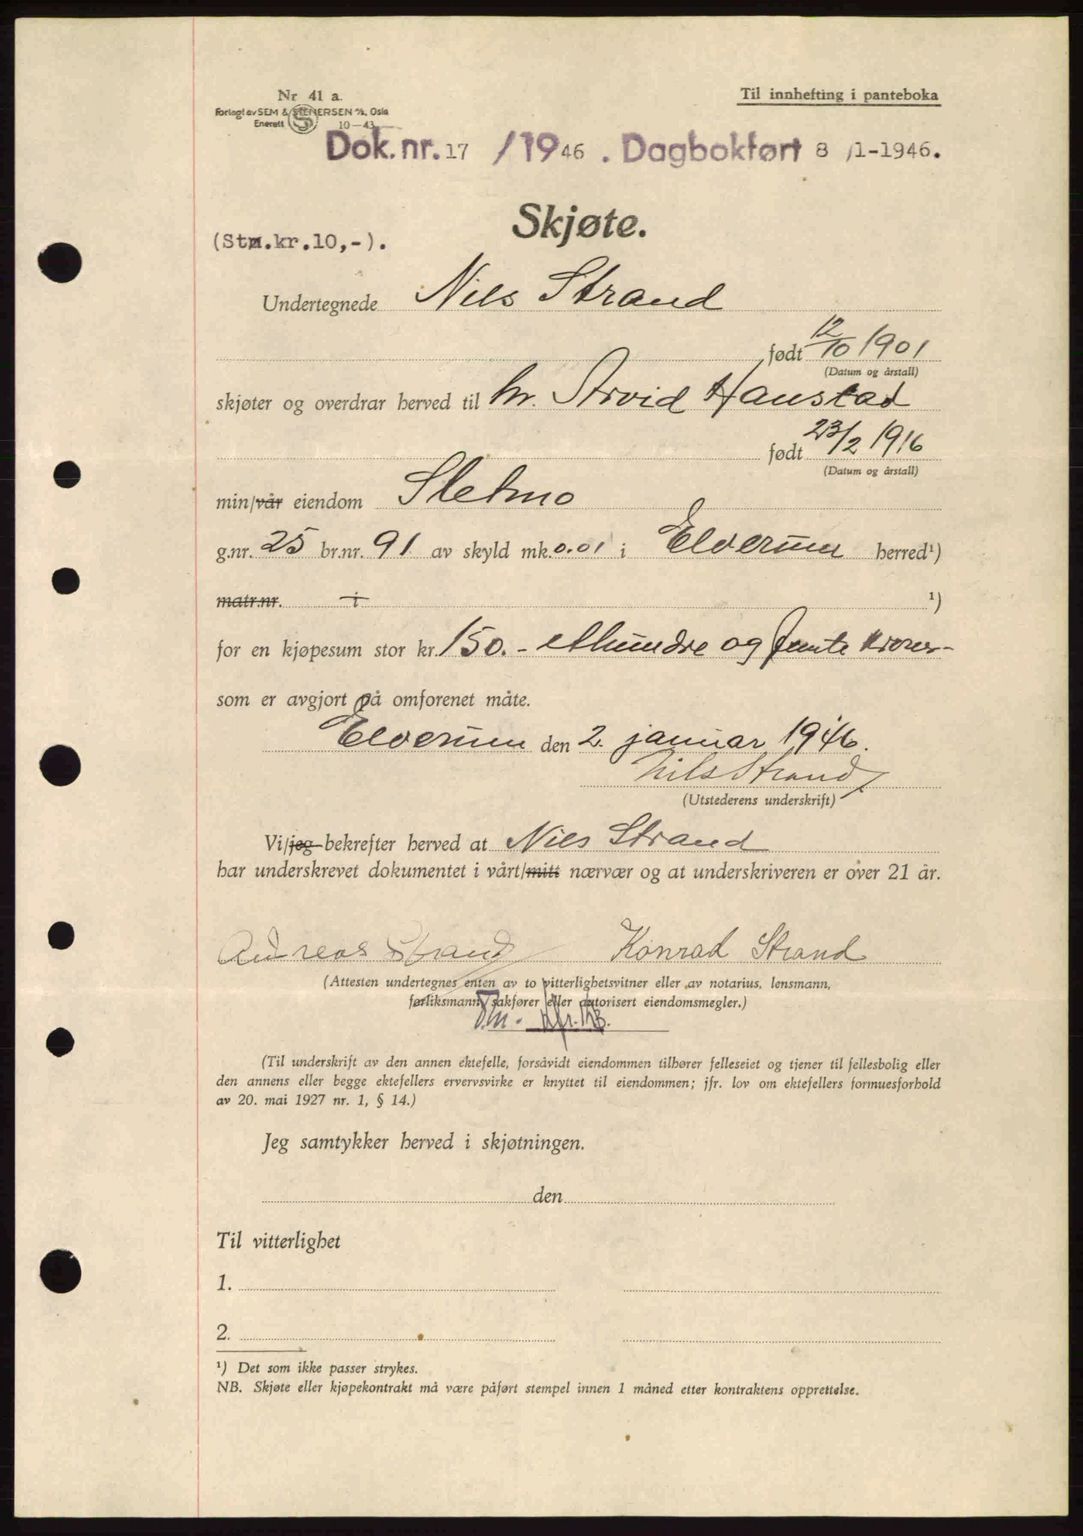 Nr 41 a.
Til innhefting i panteboka
Forlagt av SEM & STENERSEN A/S, Oslo
Enerett 10-43
Dok.nr. 17 /1946 . Dagbokført 8 /1-1946.
Skjøte.
(Stm.kr.10,-).
Undertegnede Nils Strand
født 12/10 1901
(Datum og årstall)
skjøter og overdrar herved til hr. Arvid Haustad
født 23/2 1916
(Datum og årstall)
min/vår eiendom Sletmo
g.nr. 25 br.nr. 91 av skyld mk. 0.01 i Elverum herred¹)
matr.nr. i ¹)
for en kjøpesum stor kr. 150.- etthundre og femti kroner-
som er avgjort på omforenet måte.
Elverum den 2. januar 1946.
Nils Strand
(Utstederens underskrift)
Vi/jeg bekrefter herved at Nils Strand
har underskrevet dokumentet i vårt/mitt nærvær og at underskriveren er over 21 år.
Andreas Strand Konrad Strand
(Attesten undertegnes enten av to vitterlighetsvitner eller av notarius, lensmann,
forliksmann, sakfører eller autorisert eiendomsmegler.)
(Til underskrift av den annen ektefelle, forsåvidt eiendommen tilhører felleseiet og tjener til fellesbolig eller
den annens eller begge ektefellers ervervsvirke er knyttet til eiendommen; jfr. lov om ektefellers formuesforhold
av 20. mai 1927 nr. 1, § 14.)
Jeg samtykker herved i skjøtningen.
den
Til vitterlighet
1.
2.
¹) Det som ikke passer strykes.
NB. Skjøte eller kjøpekontrakt må være påført stempel innen 1 måned etter kontraktens opprettelse.